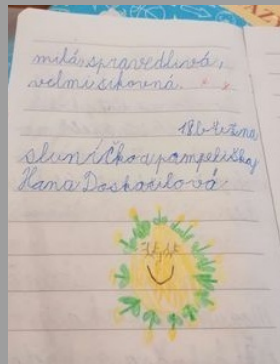 milá, spravedlivá,
velmi šikovná.
18. března
sluníčko a pampeliškaj
Hana Doskočilová